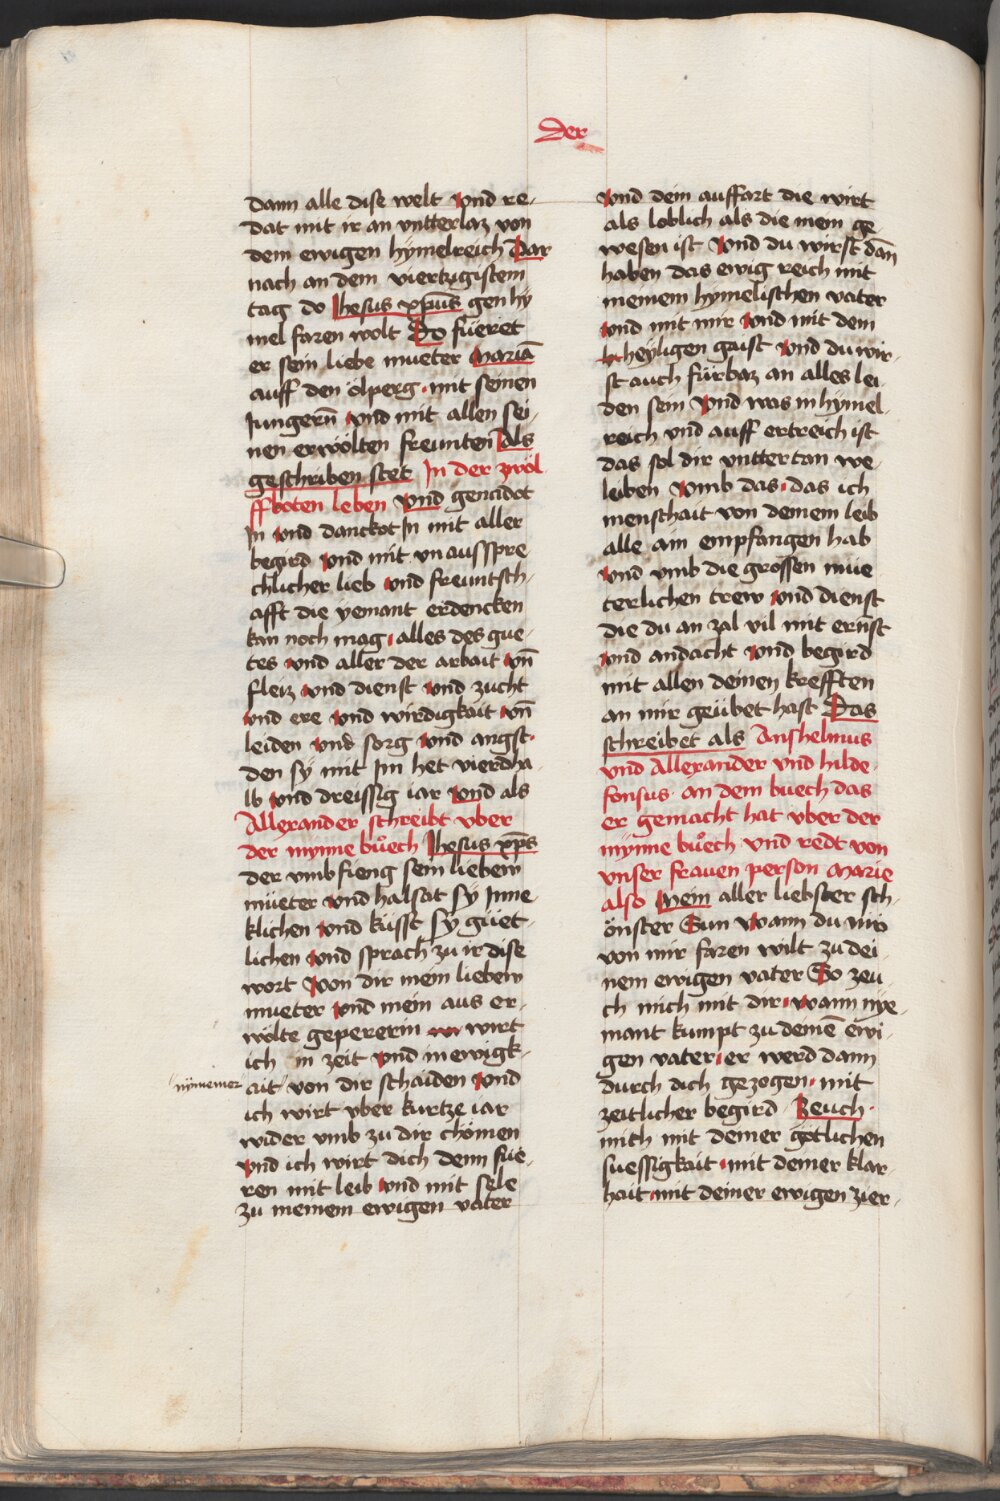 Der
dann alle dise welt vnd re-
dat mit ir an vntterlaz von
dem ewigen hymelreich Dar
nach an dem viertzigistem
tag do Jhesus xp̄us gen hy
mel faren wolt Do füeret
er sein liebe mueter Mariā
auff den ölperg · mit seinen
Jungerñ vnd mit allen sei-
nen erwölten freunten Als
geschriben stet In der zwöl
ffboten leben Vnd genadot
In vnd danckot In mit aller
begird vnd mit vn ausspre
chlicher lieb vnd freuntsch-
afft die yemant erdencken
kan noch mag · alles des gue-
tes vnd aller der arbait vñ
fleiz vnd dienst vnd zucht
vnd ere vnd wirdigkait vñ
leiden vnd sorg vnd angst·
den sy mit Im het vierdha
lb vnd dreissig iar vnd als
Allexander schreibt vber
der mynne bůech Jhesus xp̄s
der vmb fieng sein lieben
müeter vnd halsat sy Inne
klichen vnd küsst sy güet-
lichen vnd sprach zu ir dise
wort Von dir mein lieben
mueter vnd mein aus er-
wölte gepererin wirt
ich in zeit vnd in ewigk-
nÿmemer
ait von dir schaiden vnd
ich wirt vber kurtze iar
wider vmb zu dir chömen
vnd ich wirt dich denn füe-
ren mit leib vnd mit sele
zu meinem ewigen vater
vnd dein auffart die wirt
als loblich als die mein ge-
wesen ist Vnd du wirst dañ
haben das ewig reich mit
meinem hymelischen vater
vnd mit mir vnd mit dem
heyligen gaist vnd du wir-
st auch fürbaz an alles lei-
den sein Vnd was in hymel-
reich vnd auff ertreich ist
das sol dir vnttertan we
leiben Vmb das · das ich
menschait von deinem leib
alle ain empfangen hab
vnd vmb die grossen müe
terlichen trew vnd dienst
die du an zal vil mit ernst
vnd andacht vnd begird
mit allen deinen krefften
an mir geübet hast Das
schreibet als Anshelmus
vnd Allexander vnd hilde-
fonsus · an dem buech das
er gemacht hat vber der
mynne bůech vnd redt von
vnser frauen person Marie
also Mein aller liebster sch-
önster Sun wann du nu
von mir faren wilt zu dei-
nem ewigen vater So zeu
ch mich mit dir · wann nye-
mant kumpt zu deinē ewi-
gen vater · er werd dann
durch dich gezogen · mit
zeitlicher begird Zeuch ·
mich mit deiner götlichen
suessigkait · mit deiner klar-
hait · mit deiner ewigen zier-